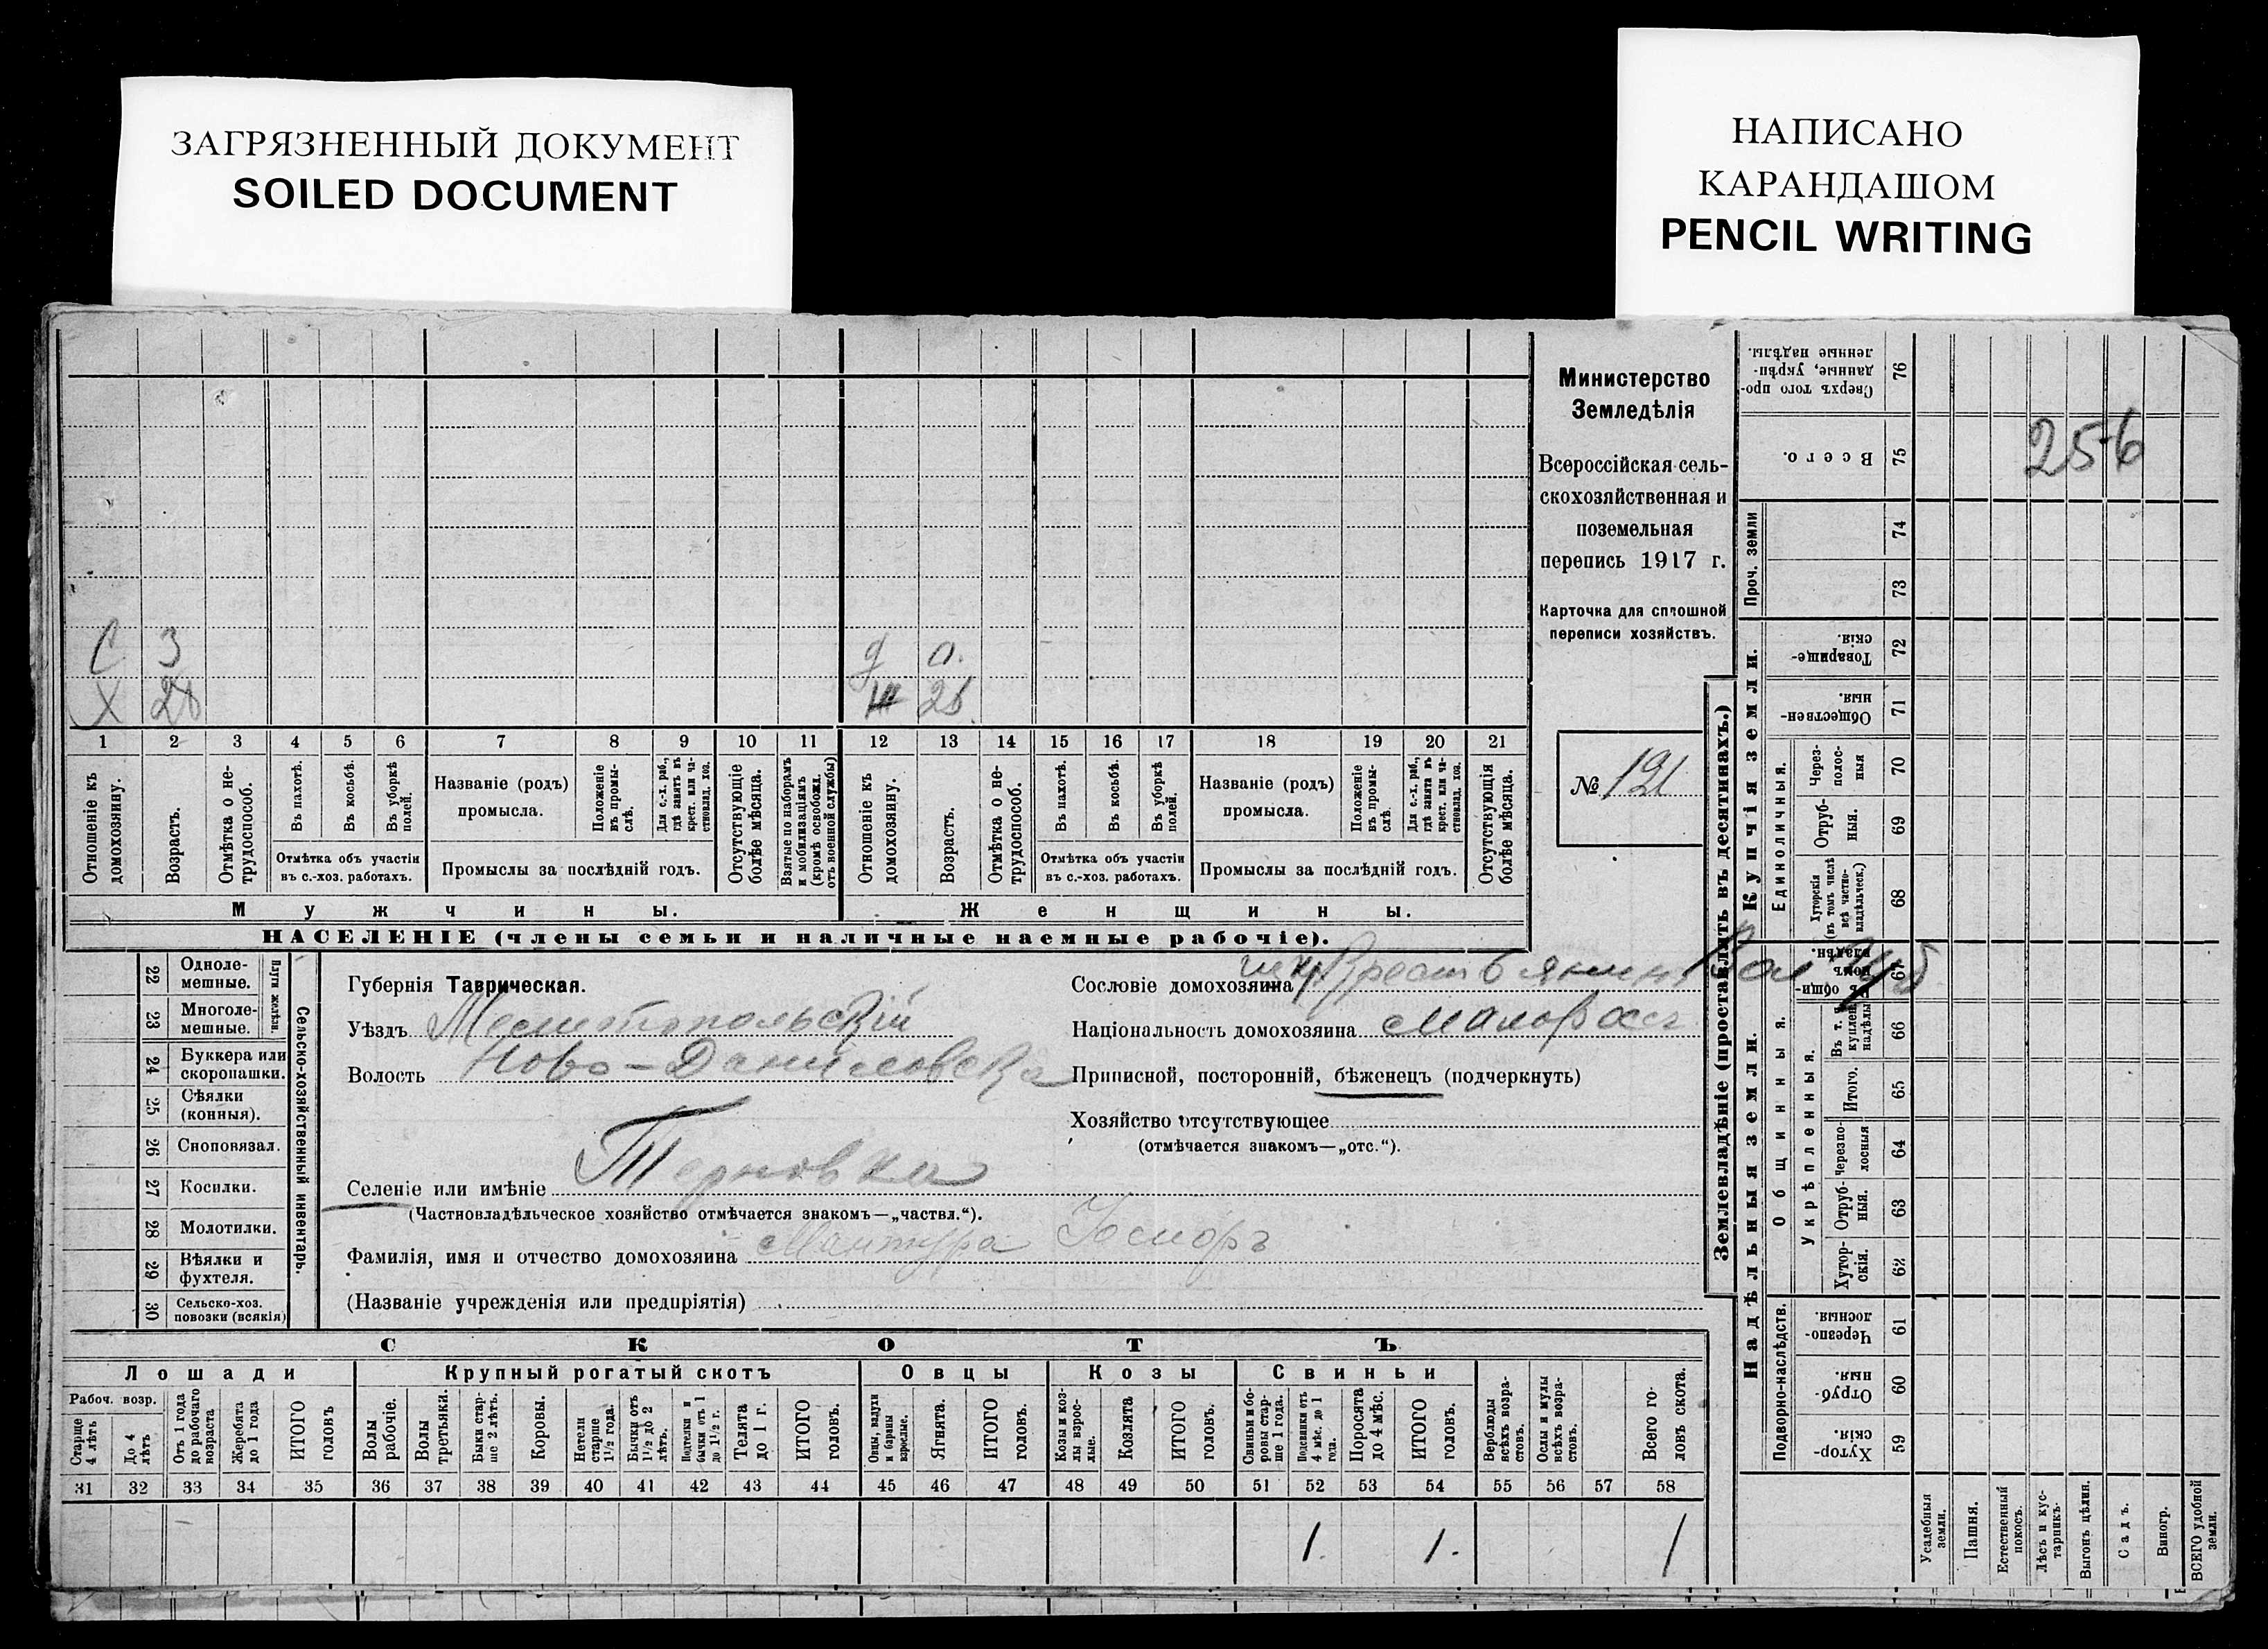 ЗАГРЯЗНЕННЫЙ ДОКУМЕНТ
SOILED DOCUMENT
НАПИСАНО
КАРАНДАШОМ
PENCIL WRITING
Министерство
Земледѣлія
Всероссійская сель-
скохозяйственная и
поземельная
перепись 1917 г.
Карточка для сплошной
переписи хозяйствъ.
№ 121
256
С 3
Х 28
д
1 2 3 4 5 6 7 8 9 10 11 12 13 14 15 16 17 18 19 20 21
Отношеніе къ домохозяину.
Возрастъ.
Отмѣтка о не-трудоспособ.
Въ пахотѣ.
Въ косьбѣ.
Въ уборкѣ полей.
Отмѣтка объ участіи
въ с.-хоз. работахъ.
Названіе (родъ)
промысла.
Положеніе въ промы-слѣ.
Для с.-х. раб., гдѣ занятъ въ крест. или ча-стновлад. хоз.
Промыслы за послѣдній годъ.
Отсутствующіе болѣе мѣсяца.
Взятые по наборамъ и мобилизаціямъ (кромѣ освобожд. отъ военной службы)
Отношеніе къ домохозяину.
Возрастъ.
Отмѣтка о не-трудоспособ.
Въ пахотѣ.
Въ косьбѣ.
Въ уборкѣ полей.
Отмѣтка объ участіи
въ с.-хоз. работахъ.
Названіе (родъ)
промысла.
Положеніе въ промы-слѣ
Для с.-х. раб., гдѣ занята въ крест. или ча-стновлад. хоз.
Промыслы за послѣдній годъ.
Отсутствующія болѣе мѣсяца.
Мужчины.
Женщины.
НАСЕЛЕНІЕ (члены семьи и наличные наемные рабочіе).
Сельско-хозяйственный инвентарь.
22 Одноле-мешные.
23 Многоле-мешные.
24 Буккера или скоропашки.
25 Сѣялки (конныя).
26 Сноповязал.
27 Косилки.
28 Молотилки.
29 Вѣялки и фухтеля.
30 Сельско-хоз. повозки (всякія)
Губернія Таврическая.
Уѣздъ Мелитопольскій
Волость Ново-Даниловска
Селеніе или имѣніе Терновка
(Частновладѣльческое хозяйство отмѣчается знакомъ—„частвл.“).
Фамилія, имя и отчество домохозяина Мантура
(Названіе учрежденія или предпріятія)
Сословіе домохозяина Крестьянин
Національность домохозяина Малоросс
Приписной, посторонній, бѣженецъ (подчеркнуть)
Хозяйство отсутствующее
(отмѣчается знакомъ—„отс.“).
СКОТЪ
Лошади
Крупный рогатый скотъ
Овцы
Козы
Свиньи
Рабоч. возр.
Старше 4 лѣтъ
До 4 лѣтъ
Отъ 1 года до рабочаго возраста
Жеребята до 1 года
ИТОГО головъ
Волы рабочіе.
Волы третьяки.
Быки стар-ше 2 лѣтъ.
Коровы.
Нетели старше 1½ года.
Бычки отъ 1½ до 2 лѣтъ.
Подтелки и бычки отъ 1 до 1½ г.
Телята до 1 г.
ИТОГО головъ.
Овцы, валухи и бараны взрослые.
Ягнята.
ИТОГО головъ.
Козы и коз-лы взрос-лые.
Козлята
ИТОГО головъ.
Свиньи и бо-ровы стар-ше 1 года.
Подсвинки отъ 4 мѣс. до 1 года.
Поросята до 4 мѣс.
ИТОГО головъ.
Верблюды всѣхъ возра-стовъ.
Ослы и мулы всѣхъ возра-стовъ.
Всего го-ловъ скота.
31 32 33 34 35 36 37 38 39 40 41 42 43 44 45 46 47 48 49 50 51 52 53 54 55 56 57 58
1. 1. 1
Землевладѣніе (проставлять въ десятинахъ.)
Надѣльныя земли.
Купчія земли.
Проч. земли
Подворно-наслѣдств.
Общинныя.
Укрѣпленныя.
Единоличныя.
76 Сверхъ того про-данные, укрѣп-ленные надѣлы.
75 Всего.
74
73
72 Товарище-скія.
71 Обществен-ныя.
70 Через-полос-ныя
69 Отруб-ныя.
68 Хуторскія (въ томъ числѣ всѣ частно-владѣльческ.)
67
66 Въ т. ч. куплен. надѣлы
65 Итого.
64 Черезпо-лосныя
63 Отруб-ныя.
62 Хутор-скія.
61 Черезпо-лосныя
60 Отруб-ныя.
59 Хутор-скія.
Усадебныя земли.
Пашня.
Естественный покосъ.
Лѣсъ и кус-тарникъ.
Выгонъ цѣлин.
Садъ.
Виногр.
ВСЕГО удобной земли.